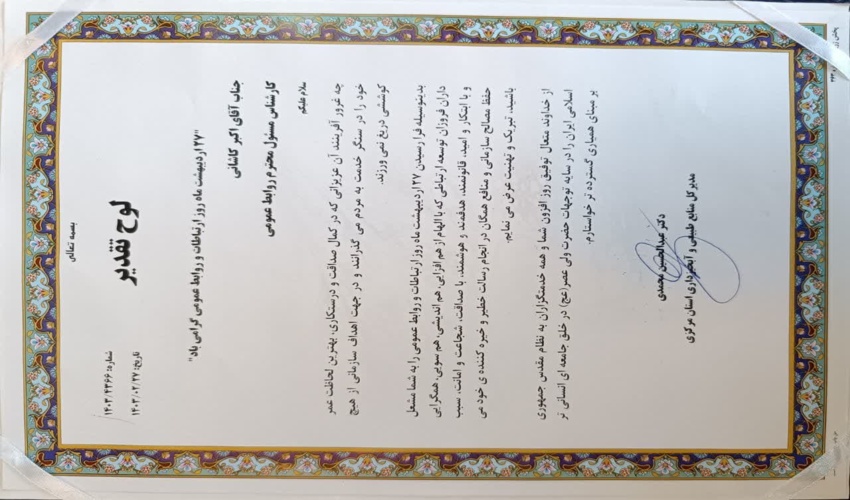 بسمه تعالی
لوح تقدیر
شماره: ۱۴۰۳/۴۳۶۶
تاریخ: ۱۴۰۳/۰۲/۲۷
"۲۷ اردیبهشت ماه روز ارتباطات و روابط عمومی گرامی باد"
جناب آقای اکبر کاشانی
کارشناس مسئول محترم روابط عمومی
سلام علیکم
چه غرور آفرینند آن عزیزانی که در کمال صداقت و درستکاری، بهترین لحاظت عمر
خود را در سنگر خدمت به مردم می گذرانند و در جهت اهداف سازمانی از هیچ
کوششی دریغ نمی ورزند.
بدینوسیله فرا رسیدن ۲۷ اردیبهشت ماه روز ارتباطات و روابط عمومی را به شما مشعل
داران فروزان توسعه ارتباطی که با الهام از هم افزایی، هم اندیشی، هم سویی، همگرایی
و با ابتکار و امید، قانونمند، هدفمند و هوشمند، با صداقت، شجاعت و امانت، سبب
حفظ مصالح سازمانی و منافع همگان در انجام رسالت خطیر و خیره کننده ی خود می
باشید، تبریک و تهنیت عرض می نمایم.
از خداوند متعال توفیق روز افزون شما و همه خدمتگزاران به نظام مقدس جمهوری
اسلامی ایران را در سایه توجهات حضرت ولی عصر(عج) در خلق جامعه ای انسانی تر
بر مبنای همیاری گسترده تر خواستارم.
دکتر عبدالحسین محمدی
مدیر کل منابع طبیعی و آبخیزداری استان مرکزی